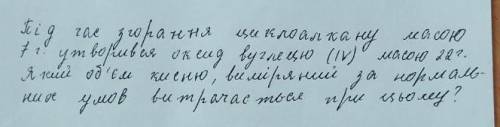 Під час згорання циклоалкану масою
7 г. утворився оксид вуглецю (IV) масою 22 г.
Який об'єм кисню, виміряний за нормаль-
них умов витрачається при цьому?